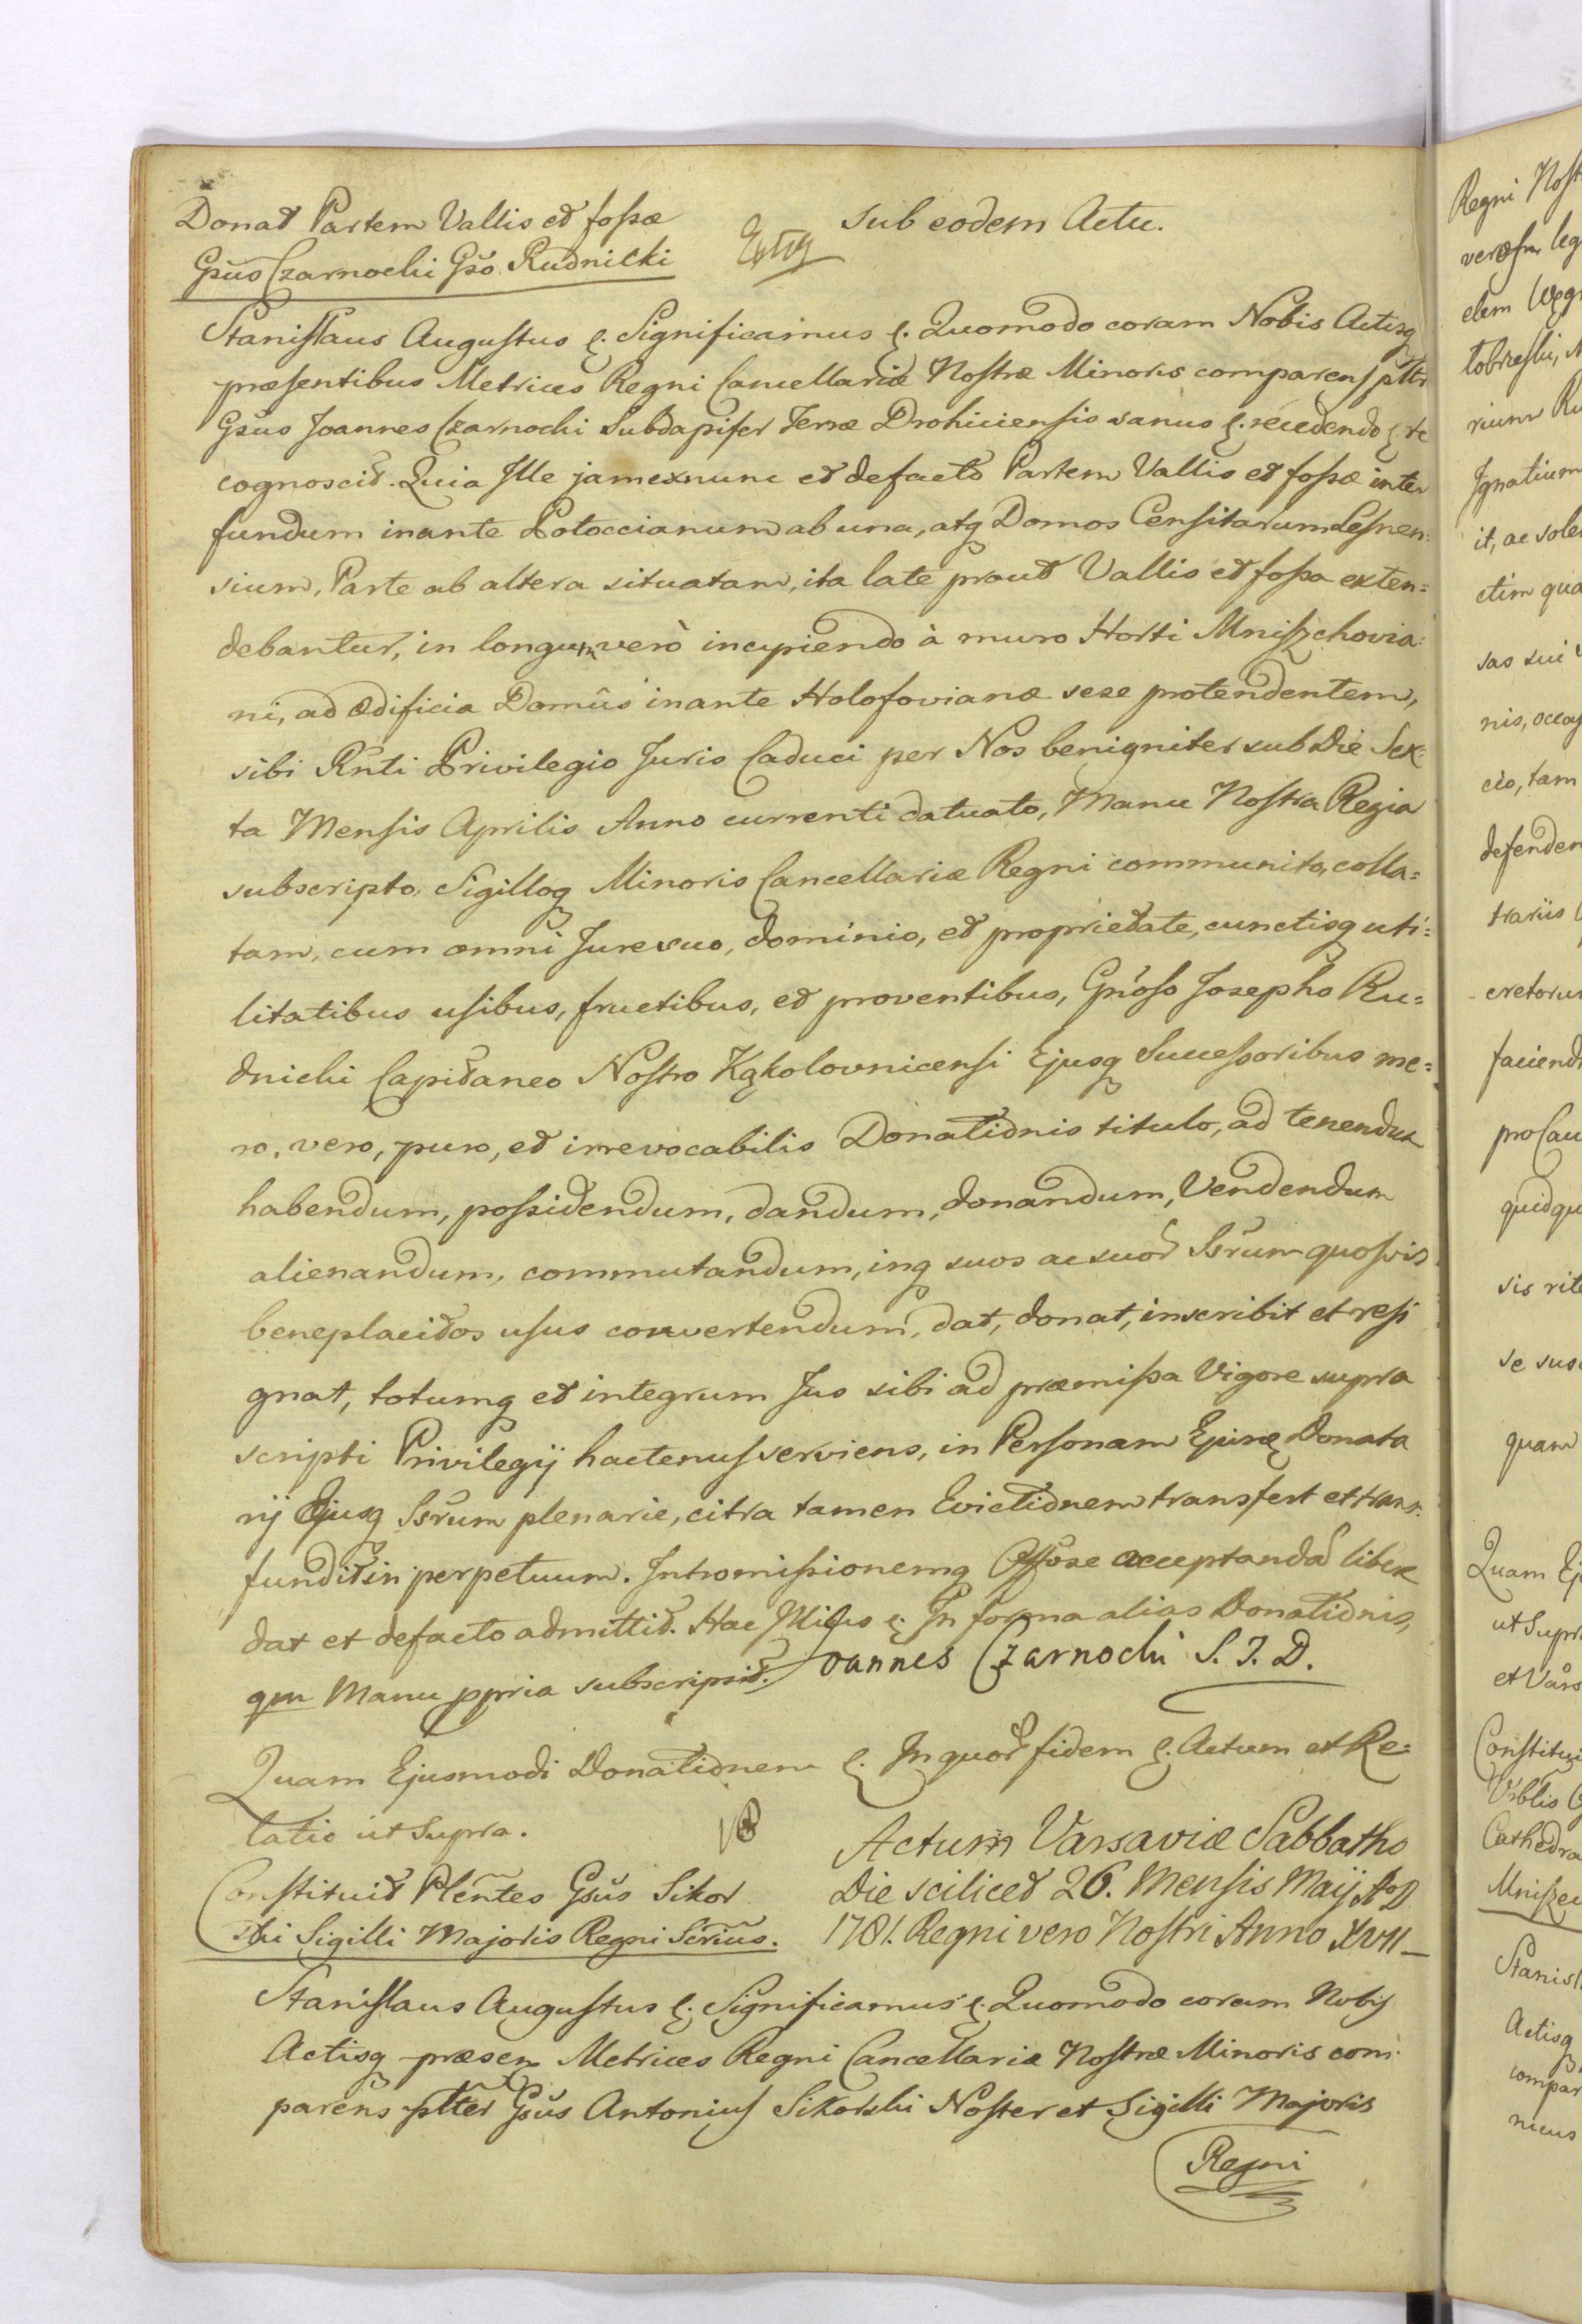 Donat Partem Vallis et fossæ
Gsus Czarnocki Gso Rudnicki
sub eodem Actu.
Stanislaus Augustus &. Significamus &. Quomodo coram Nobis Actisq
præsentibus Metrices Regni Cancellariæ Nostræ Minoris comparens pltr
Gsus Joannes Czarnocki Subdapifer Terræ Drohiciensis sanus &. recedendo & re
cognoscit. Quia Ille jam ex nunc et de facto Partem Vallis et fossæ inter
fundum inante Potoccianum ab una, atq Domos Censitarum Lesnen:
sium, Parte ab altera situatam, ita late prout Vallis et fossa exten=
debantur, in longum verò incipiendo à muro Horti Mniszchovia:
ni, ad Ædificia Domûs inante Holofovianæ sese protendentem,
sibi Rnti Privilegio Juris Caduci per Nos benigniter sub Die Sex:
ta Mensis Aprilis Anno currenti datuato, Manu Nostra Regia
subscripto, Sigilloq Minoris Cancellariæ Regni communito, colla=
tam, cum omni Jure suo, dominio, et proprietate, cunctisq uti=
litatibus usibus, fructibus, et proventibus, Gnoso Josepho Ru=
dnicki Capitaneo Nostro Kąkolovnicensi Ejusq Successoribus me=
ro, vero, puro, et irrevocabilis Donationis titulo, ad tenendum
habendum, possidendum, dandum, donandum, Vendendum
alienandum, commutandum, inq suos ac suor Ssrum quosvis
beneplacitos usus convertendum, dat, donat, inscribit et resi
gnat, totumq et integrum Jus sibi ad præmissa Vigore supra
scripti Privilegij hactenus serviens, in Personam Ejusq Donata
rij Ejusq Ssrum plenarie, citra tamen Evictionem transfert et trans:
fundit in perpetuum. Intromissionemq Offose acceptandā libere
dat et de facto admittit. Hac &. In forma alias Donationis,
qm Manu ppria subscripsit. Joannes Czarnocki S. Z. D.
Quam Ejusmodi Donationem &. In quor fidem &. Actum et Re=
latio ut Supra.
Actum Varsaviæ Sabbatho
Die scilicet 26. Mensis Maij AD
1781. Regni vero Nostri Anno XVII
Constituit Plentes Gsus Sikor
ski Sigilli Majoris Regni Scrius.
Stanislaus Augustus &. Significamus &. Quomodo coram Nobis
Actisq præsen Metrices Regni Cancellariæ Nostræ Minoris com:
parens plter Gsus Antonius Sikorski Noster et Sigilli Majoris
Regni